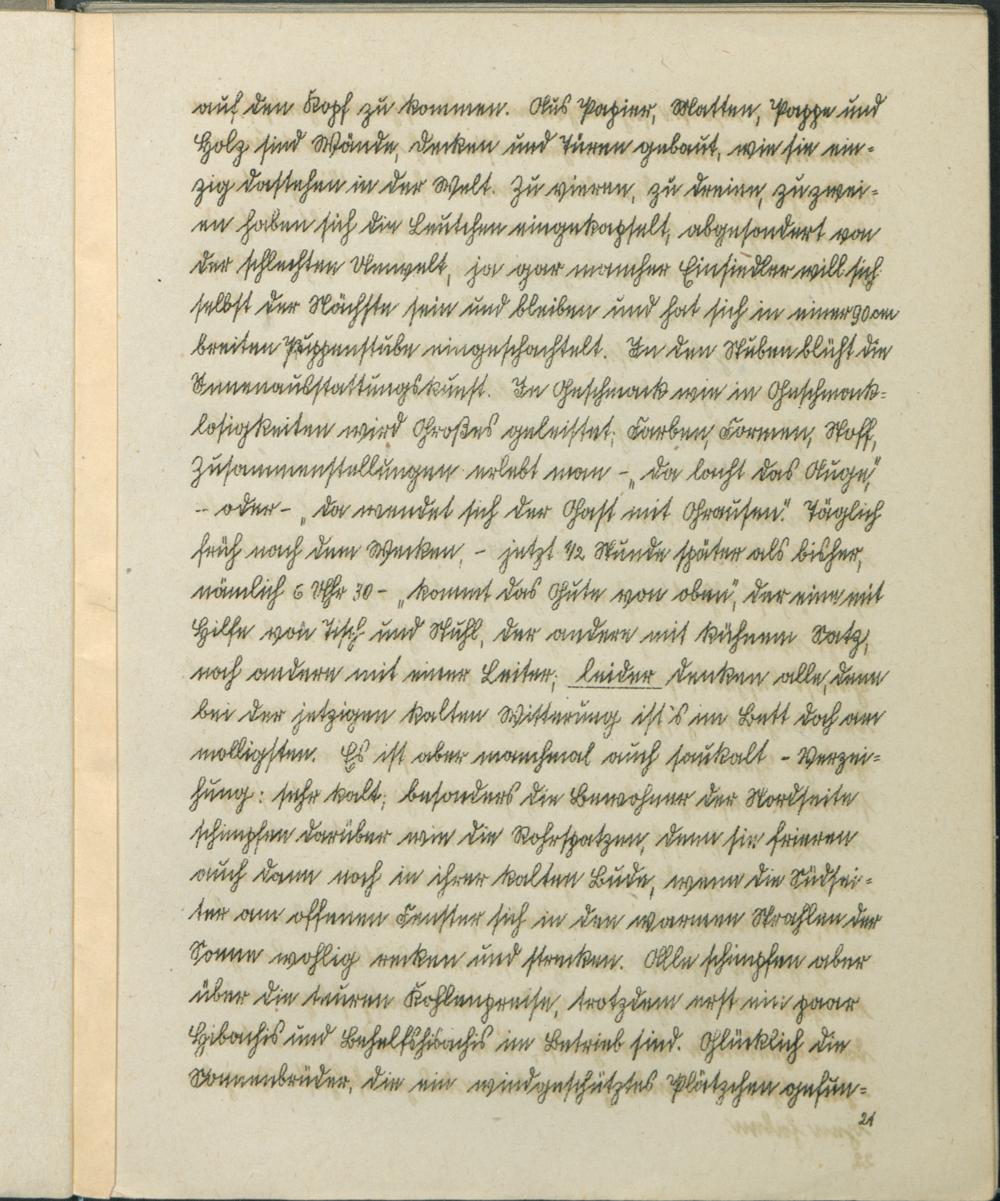 auf den Kopf zu kommen. Aus Papier, Matten, Pappe und
Holz sind Wände, Decken und Türen gebaut, wie sie ein-
zig dastehen in der Welt. Zu vieren, zu dreien, zu zwei-
en haben sich die Leutchen eingekapselt, abgesondert von
der schlechten Umwelt, ja gar mancher Einsiedler will sich
selbst der Nächste sein und bleiben und hat sich in einer 90 cm
breiten Puppenstube eingeschachtelt. In den Stuben blüht die
Innenausstattungskunst. In Geschmack wie in Geschmack-
losigkeiten wird Großes geleistet; Farben, Formen, Stoff,
Zusammenstellungen erlebt man - „da lacht das Auge,"
- oder - „da wendet sich der Gast mit Grausen". Täglich
früh nach dem Wecken, - jetzt 1/2 Stunde später als bisher,
nämlich 6 Uhr 30 - „kommt das Gute von oben", der eine mit
Hilfe von Tisch und Stuhl, der andere mit kühnem Satz,
noch andere mit einer Leiter; leider denken alle, denn
bei der jetzigen kalten Witterung ist's im Bett doch am
molligsten. Es ist aber manchmal auch saukalt - Verzei-
hung: sehr kalt; besonders die Bewohner der Nordseite
schimpfen darüber wie die Rohrspatzen, denn sie frieren
auch dann noch in ihrer kalten Bude, wenn die Südsei-
ter am offenen Fenster sich in den warmen Strahlen der
Sonne wohlig recken und strecken. Alle schimpfen aber
über die teuren Kohlenpreise, trotzdem erst ein paar
Hibachis und Behelfshibachis im Betrieb sind. Glücklich die
Sonnenbrüder, die ein windgeschütztes Plätzchen gefun-
21